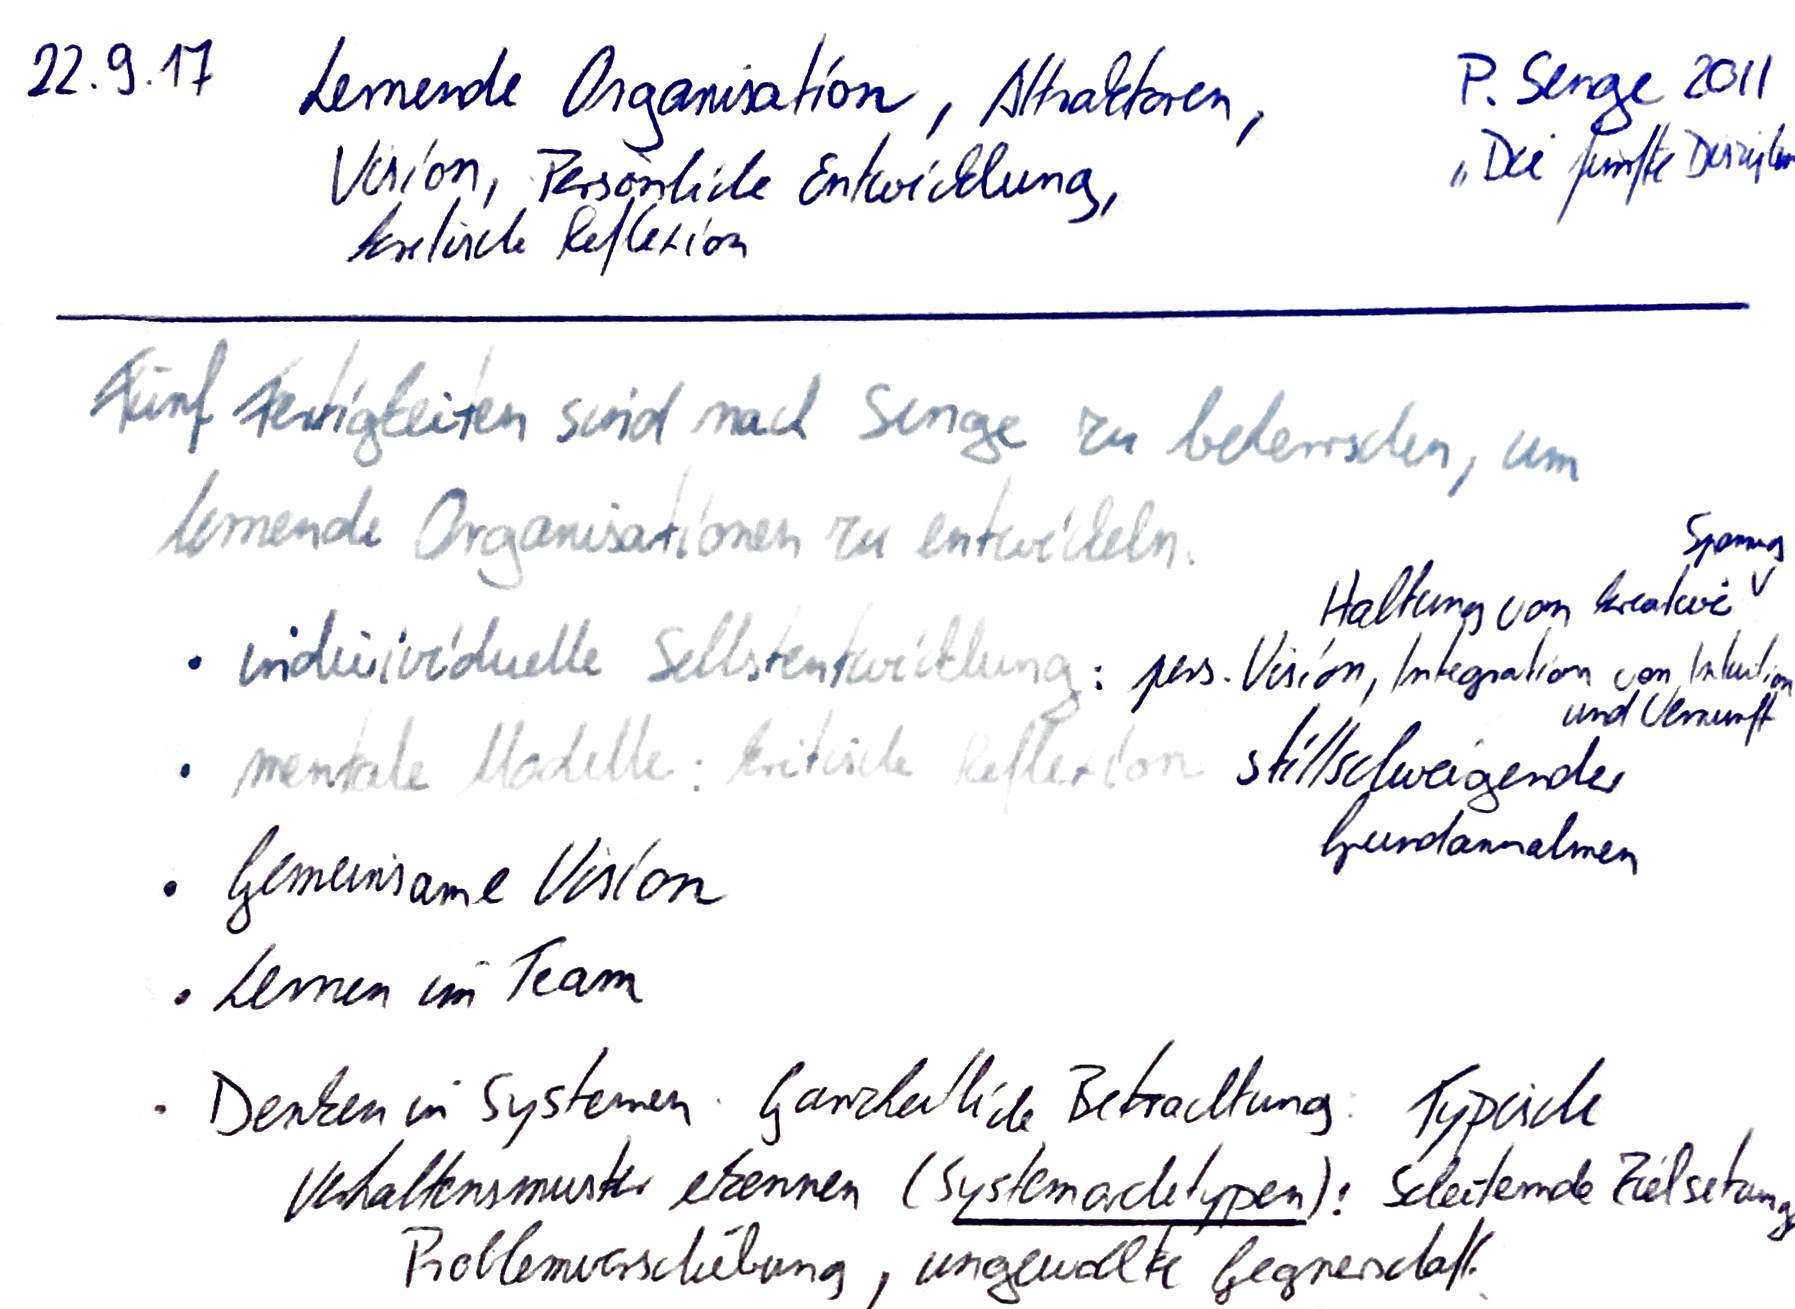 22.9.17 Lernende Organisation, Attraktoren, P. Senge 2011
Vision, Persönliche Entwicklung, „Die fünfte Disziplin
kritische Reflexion
Fünf Fertigkeiten sind nach Senge zu beherrschen, um
lernende Organisationen zu entwickeln.
Spannung
Haltung von kreative
• individuelle Selbstentwicklung: pers. Vision, Integration von Intuition
und Vernunft
• mentale Modelle: kritische Reflexion stillschweigender
Grundannahmen
• Gemeinsame Vision
• Lernen im Team
• Denken in Systemen. Ganzheitliche Betrachtung: Typische
Verhaltensmuster erkennen (Systemarchetypen): Scheiternde Zielsetzung
Problemverschiebung, ungewollte Gegnerschaft.